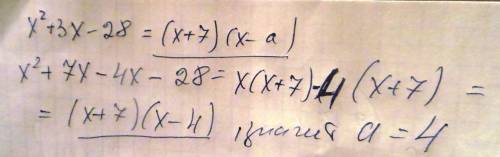 x²+3x-28 = (x+7)(x-a)
x²+7x-4x-28= x(x+7)-4(x+7) =
= (x+7)(x-4) значит a=4